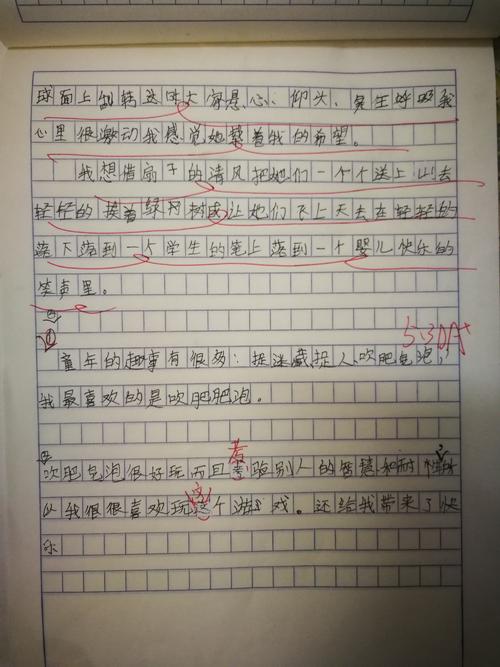 球面上到转这时大家悬心、仰头、免生呼吸我
心里很激动我感觉她带着我的希望。
我想借扇子的清风把她们一个个送上山去
轻轻的挨着绿树树成让她们飞上天去在轻轻的
落下落到一个学生的笔上落到一个婴儿快乐的
笑声里。
①
5.30A+
童年的趣事有很多：捉迷藏、捉人、吹肥皂泡，
我最喜欢的是吹肥肥泡。
考
吹肥皂泡很好玩而且考验别人的智慧和耐
这
以我很很喜欢玩这个游戏。还给我带来了快
乐